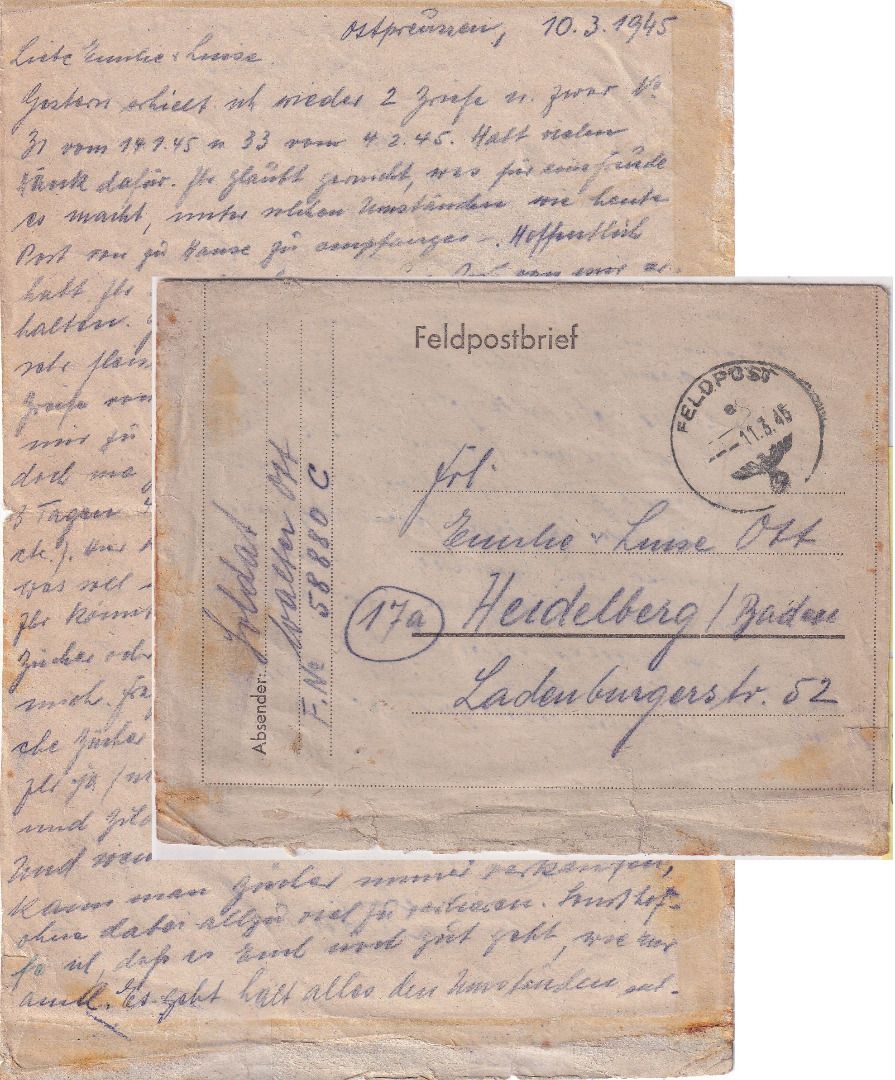 Ostpreussen, 10.3.1945
Liebe Emilie & Luise
Gestern erhielt ich wieder 2 Briefe u. zwar No
31 vom 14.1.45 u 33 vom 4.2.45. Habt vielen
Dank dafür. Ihr glaubt garnicht, was für eine Freude
es macht, unter solchen Umständen wie heute
Post von zu Hause zu empfangen. Hoffentlich
habt Ihr von mir er-
halten.
Briefe von
mir zu
doch
Tagen
etc.). Hier
was soll
Ihr könnt
Bücher oder
mich.
che Bücher
Ihr ja
und
Und wenn
kann man Bücher immer verkaufen,
ohne dabei allzu viel zu verlieren. Sonst hof-
fe ich, dass es Euch noch gut geht, wie mir
auch. Es geht halt alles den Umständen ent-
Feldpostbrief
FELDPOST
11.3.45
Frl.
Emilie & Luise Ott
17a Heidelberg / Baden
Ladenburgerstr. 52
Absender: Soldat
Walter Ott
F. No 58880 C